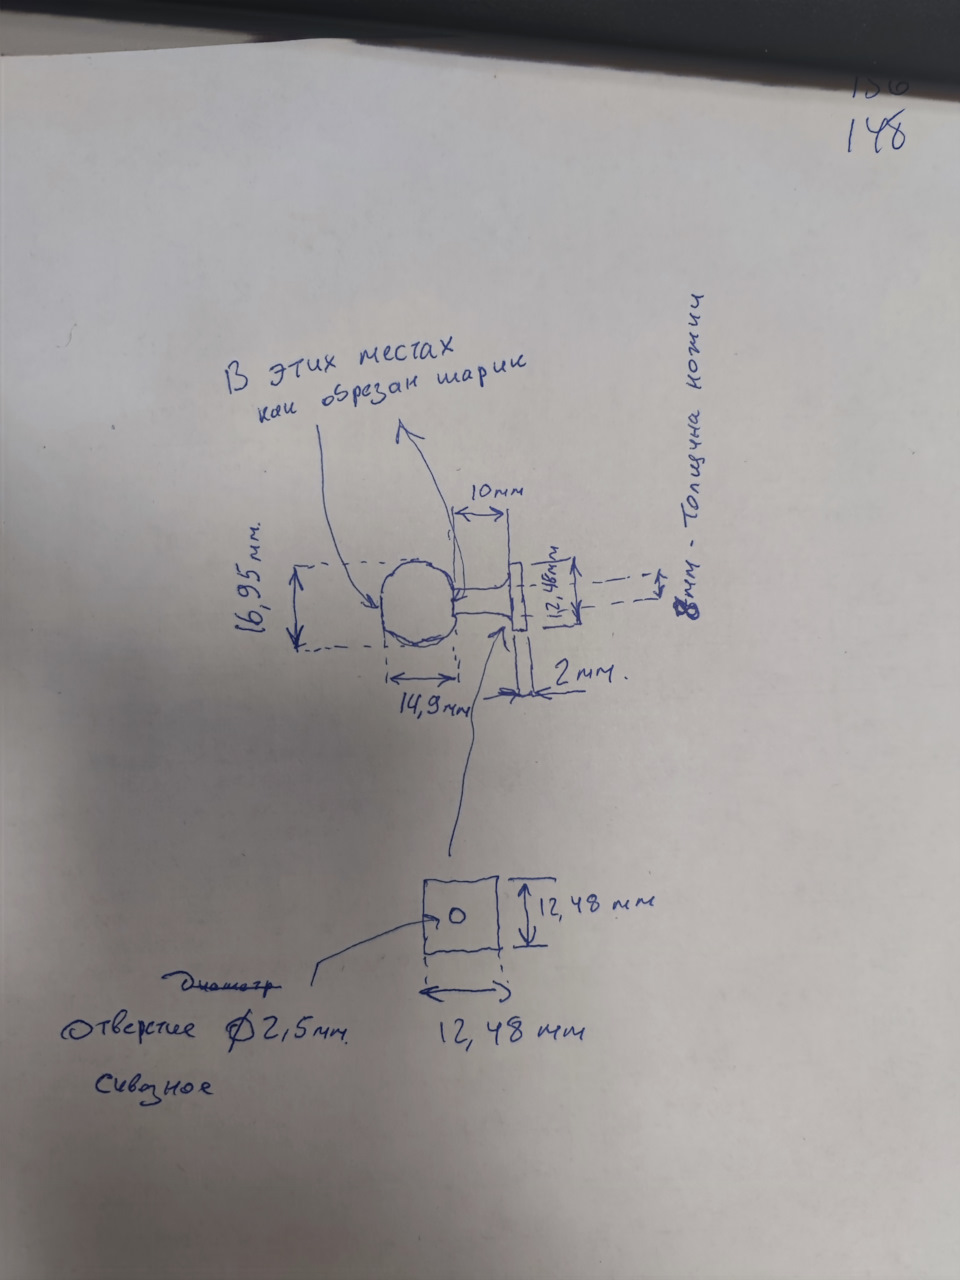 148
В этих местах
как обрезан шарик
10мм
16,95мм.
12,48мм
8мм - Толщина ножки
14,9мм
2мм.
12,48 мм
Диаметр
Отверстие Ø2,5мм.
12,48 мм
Сквозное